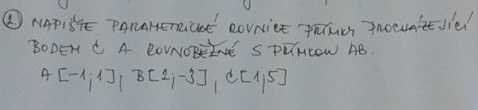 ② NAPIŠTE PARAMETRICKÉ ROVNICE PŘÍMKY PROCHÁZEJÍCÍ
BODEM C A ROVNOBĚŽNÉ S PŘÍMKOU AB.
A[-1;1], B[2;-3], C[1;5]